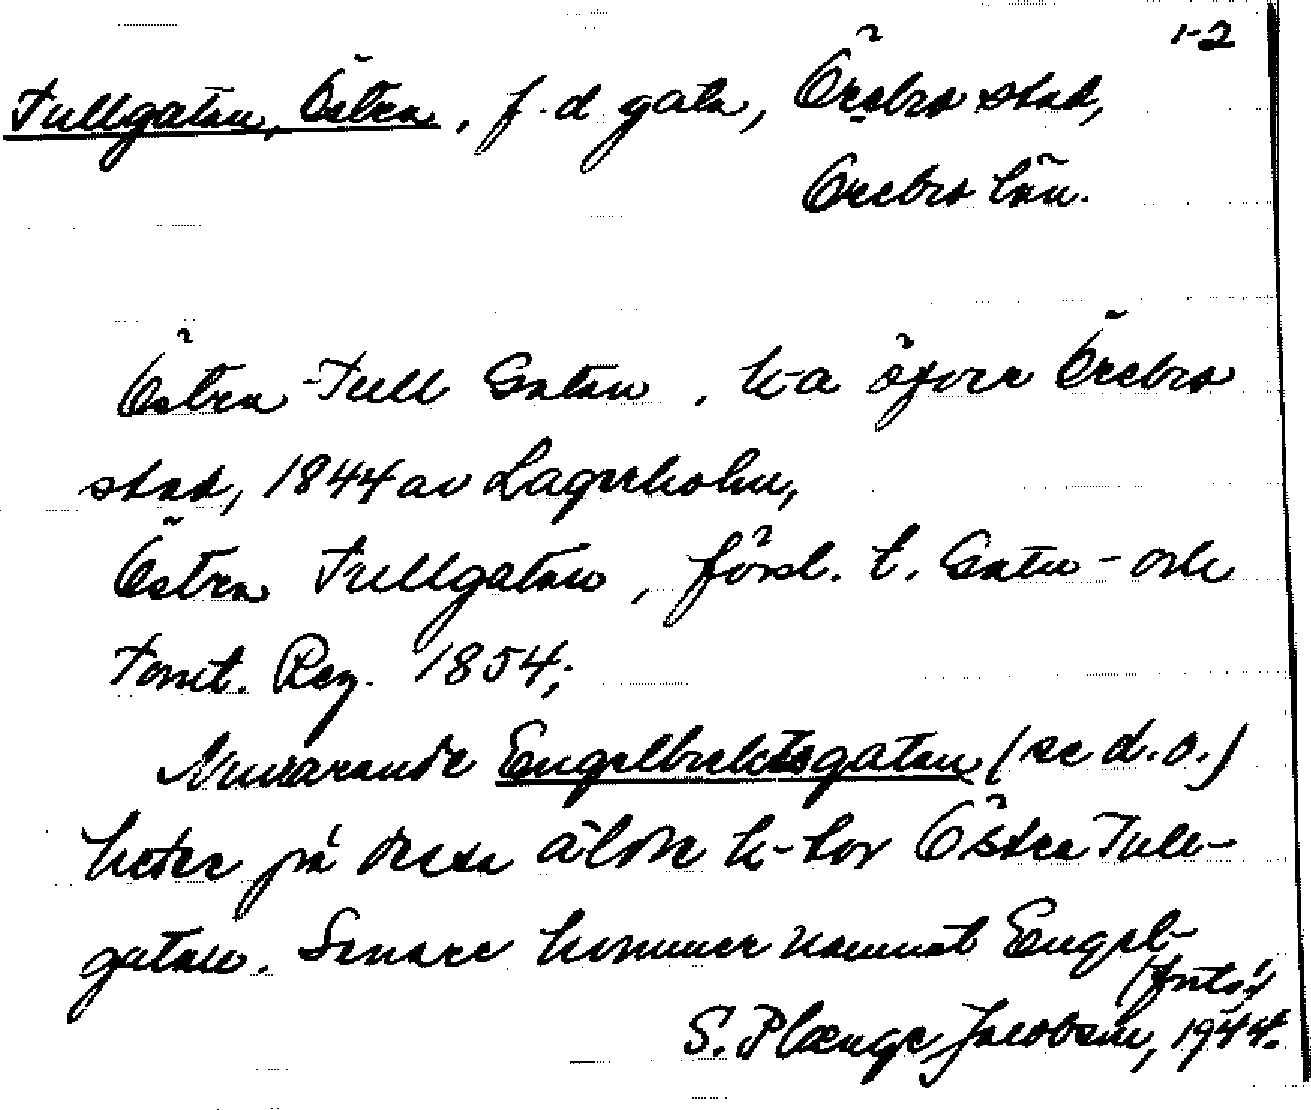 1-2
Tullgatan, Östra, f.d gata, Örebro stad,
Örebro län.
Östra Tull Gatan, ka öfver Örebro
stad, 1844 av Lagerholm,
Östra Tullgatan, försl. t. Gatu- och
Tomt. Reg. 1854;
Nuvarande Engelbrektsgatan (se d.o.)
heter på dessa äldre k-tor Östra Tull-
gatan. Senare kommer namnet Engel-
(forts.)
S. Plænge Jacobson, 1944.